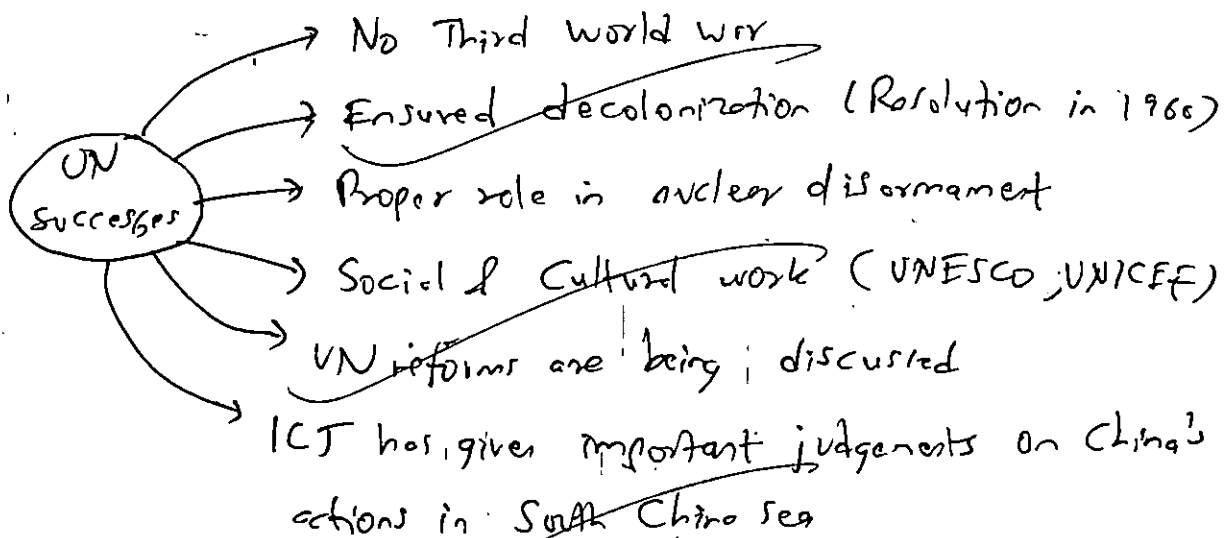 No Third World War
Ensured decolonization (Resolution in 1960)
UN
Successes
Proper role in nuclear disarmament
Social & Cultural work (UNESCO, UNICEF)
UN reforms are being discussed
ICJ has given important judgements on China's
actions in South China sea